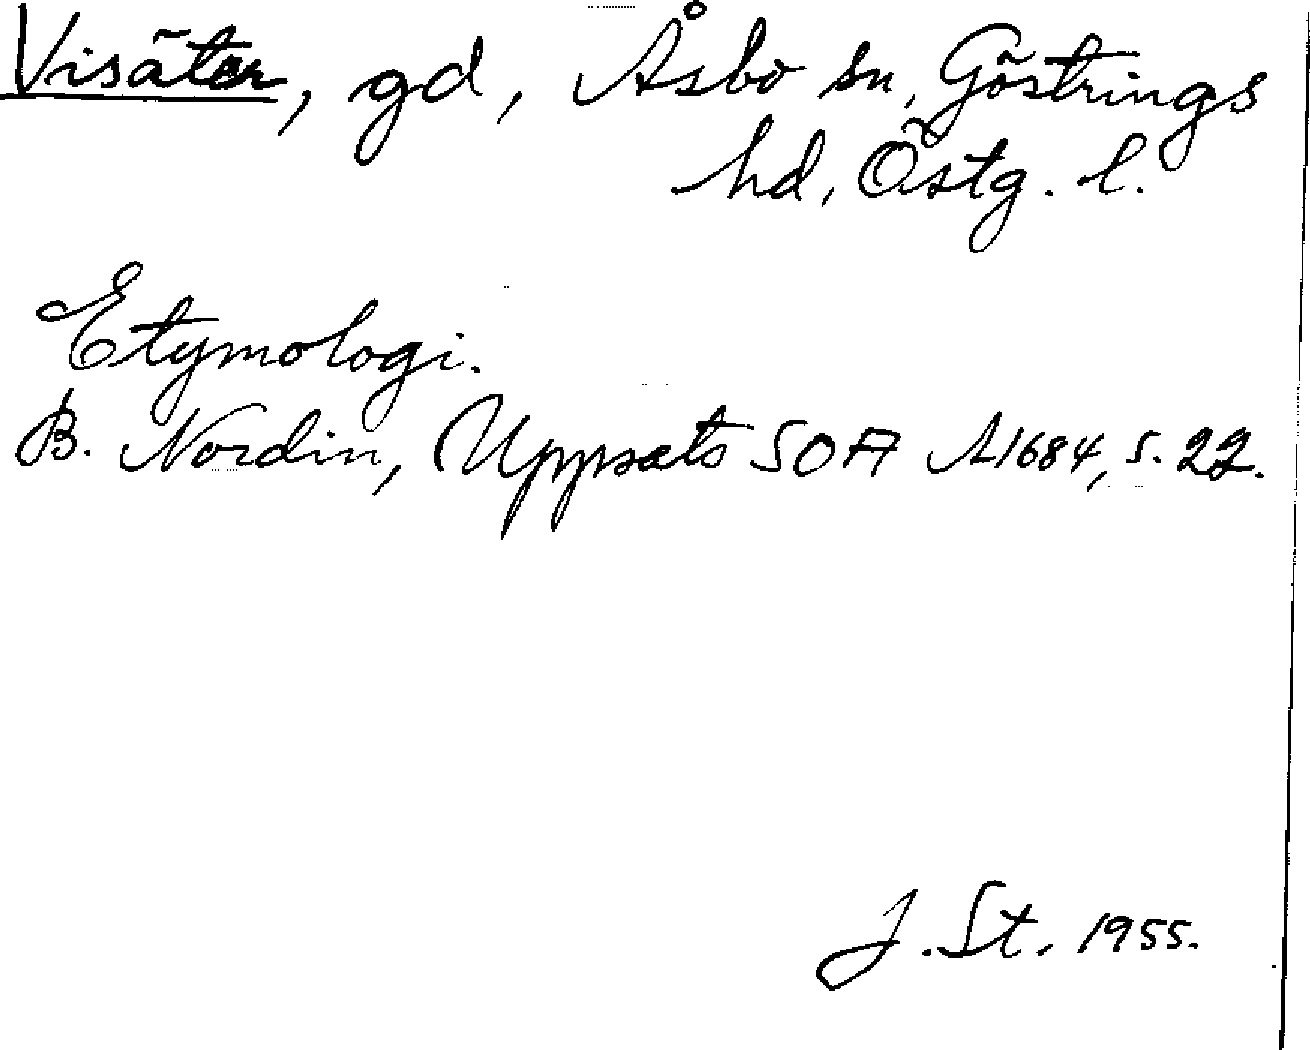 Visäter, gd, Åsbo sn, Göstrings
hd, Östg. l.
Etymologi.
B. Nordin, Uppsats SOA A1684, s. 22.
J. St. 1955.